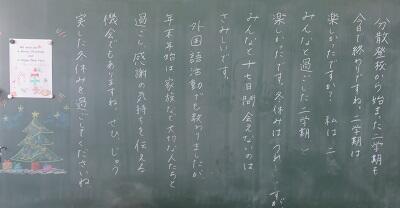 分散登校から始まった二学期も
今日で終わりですね。二学期は
楽しかったですか？ 私は二
みんなと過ごした二学期
楽しかったです。冬休みはうれ
みんなと十七日間会えないのは
さみしいです。
外国語活動でも教わりましたが、
年末年始は家族など大切な人たちと
過ごし、感謝の気持ちを伝える
機会でもありますね。ぜひ、じゅう
実した冬休みを過ごしてくださいね